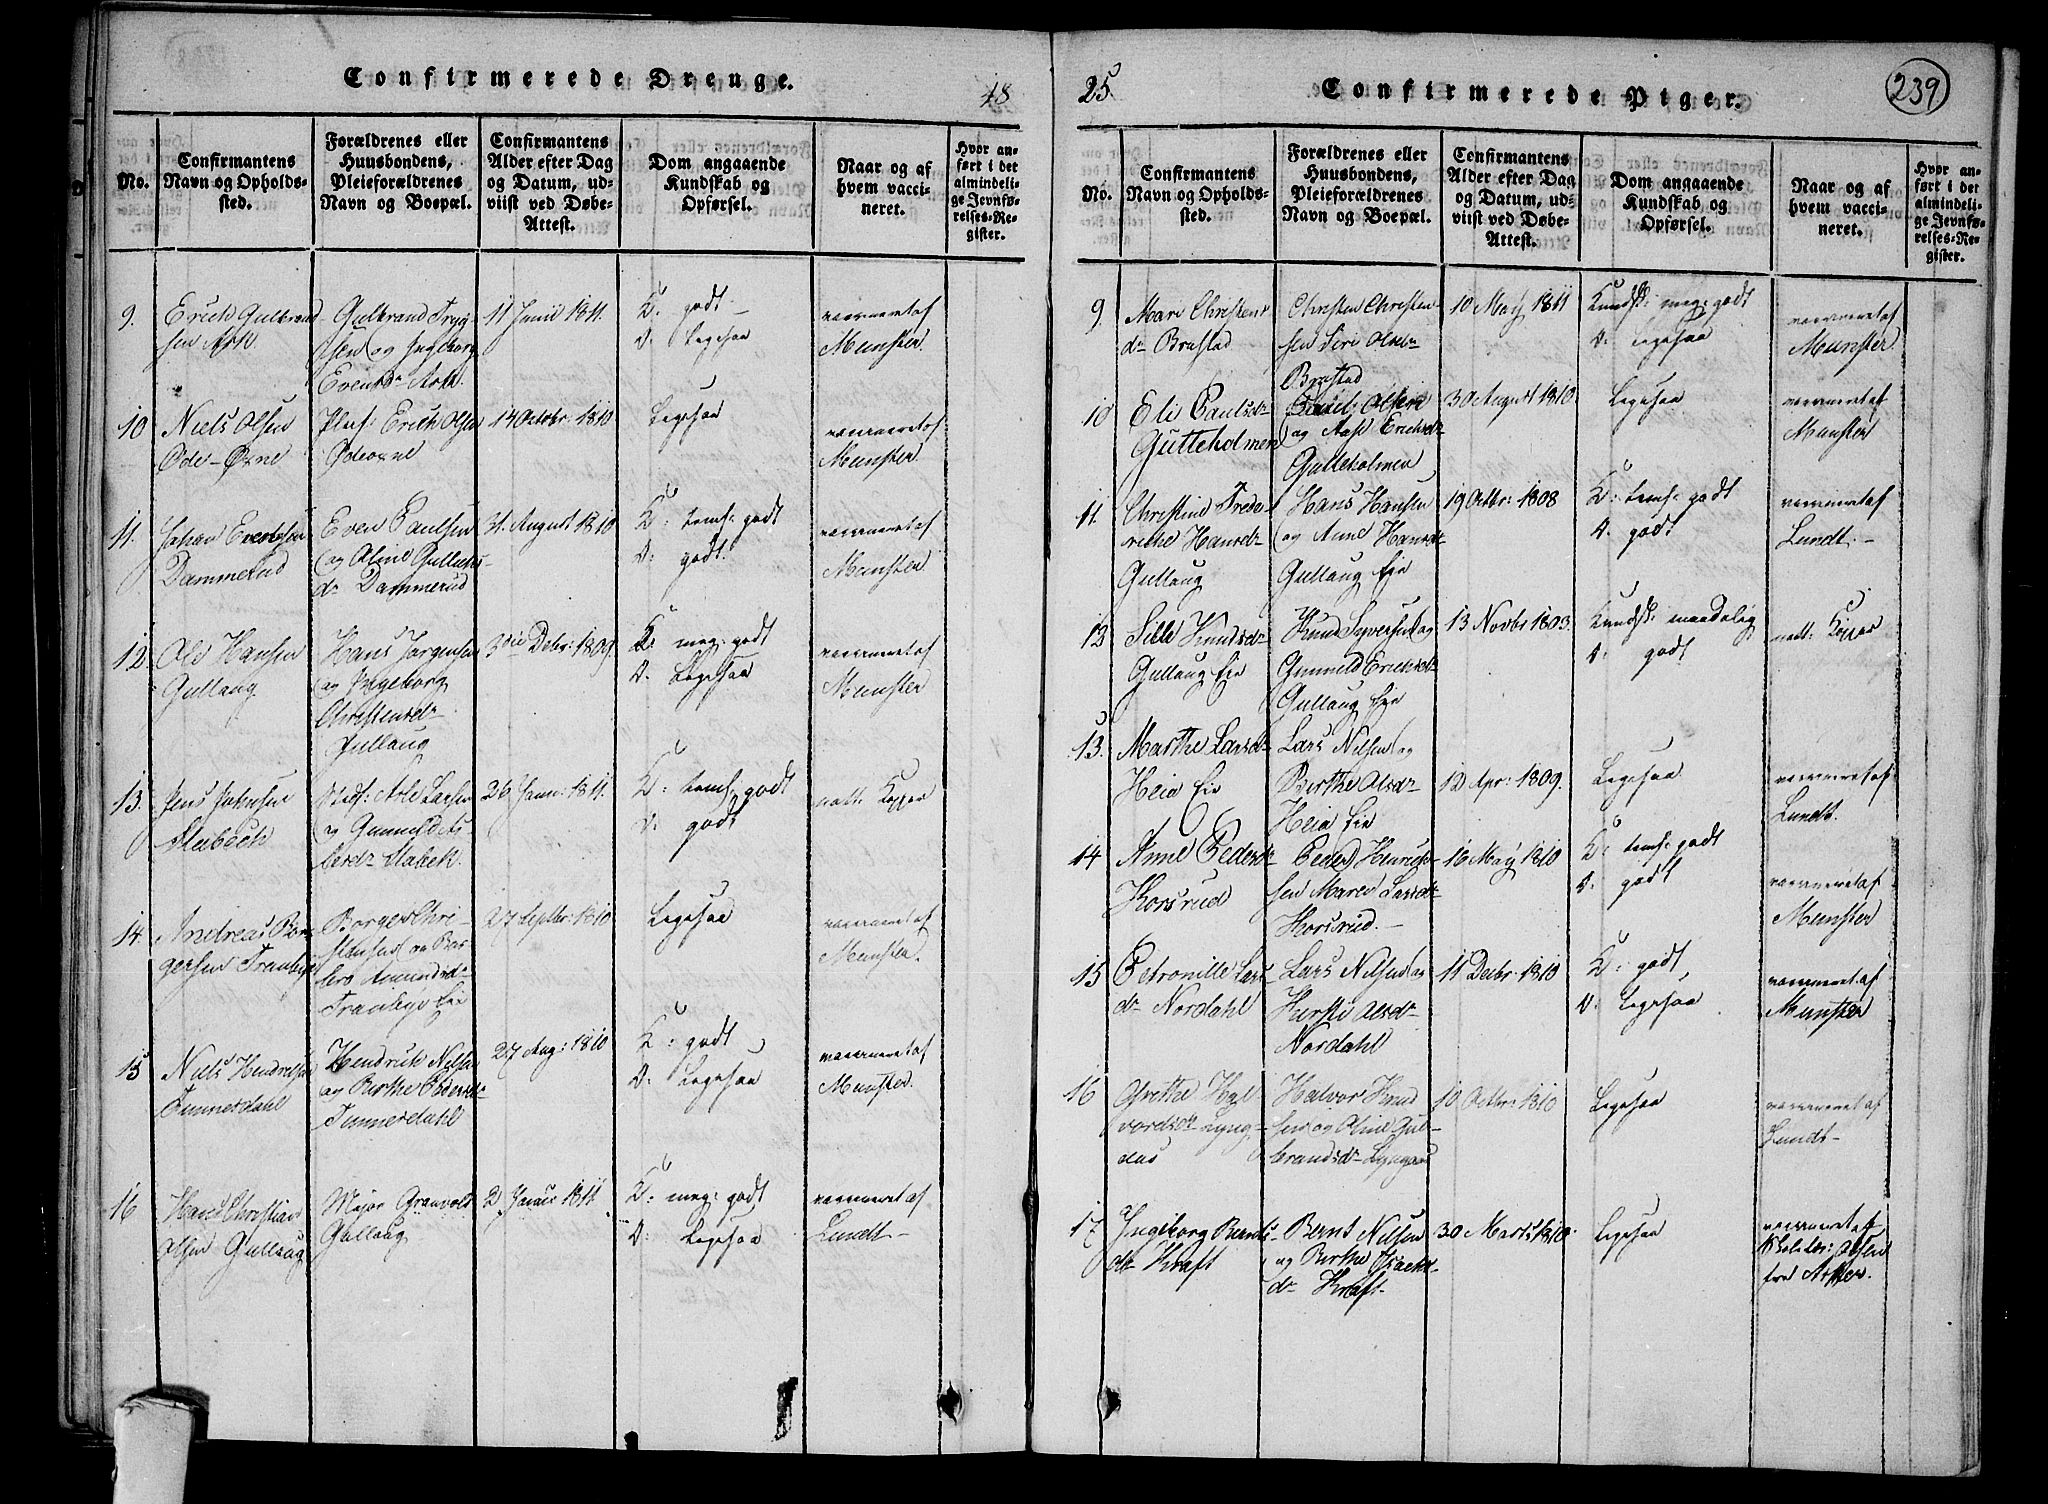 Confirmerede Drenge.
18
No.
Confirmantens
Navn og Opholds-
sted.
Forældrenes eller
Huusbondens,
Pleieforældrenes
Navn og Boepæl.
Confirmantens
Alder efter Dag
og Datum, ud-
viist ved Døbe-
Attest.
Dom angaaende
Kundskab og
Opførsel.
Naar og af
hvem vacci-
neret.
Hvor an-
ført i det
almindeli-
ge Jevnfø-
relses-Re-
gister.
9.
Erich Gulbrand
sen Ask.
Gulbrand Tryg
sen og Ingeborg
Evensdr Ask.
11 Junii 1811.
K: godt
O: Ligesaa
vaccineret af
Munster.
10
Niels Olsen
Øde-Øxne
Pleif: Erich Olsen
Ødeoxne
14 Octobr: 1810
Ligesaa
vaccineret af
Munster.
11.
Johan Evensen
Dammerud
Even Paulsen
og Oline Gullichs-
dr Dammerud
31. August 1810
K: temf: godt
O: godt.
vaccineret af
Munster
12
Ole Hansen
Gullaug
Hans Jørgensen
og Ingeborg
Christensdr
Gullaug
3die Debr: 1809.
K: meg: godt
O: Ligesaa
vaccineret af
Munster
13.
Jens Johnsen
Stabech
Pleif: Asle Larsen
og Gunnild As-
bersdr Stabek.
26 Janu: 1811.
K: temf: godt
O: godt
natt: Kopper
14.
Andreas Bør-
gersen Tranbye
Børge Chri-
stensen og Bar-
bro Amundsdr
Tranbye Eie
27 Septbr: 1810
Ligesaa
vaccineret af
Munster.
15
Niels Hendrichsen
Timmerdahl
Hendrich Nilsen
og Birthe Pedersdr
Timmerdahl
27 Aug: 1810
K: godt
O: Ligesaa
vaccineret af
Munster.
16
Hans Christian
Olsen Gullaug
Major Grønvold
Gullaug
2 Janur 1811
K: meg: godt
O: Ligesaa
vaccineret af
Lundt-
25
Confirmerede Piger.
239
No.
Confirmantens
Navn og Opholds-
sted.
Forældrenes eller
Huusbondens,
Pleieforældrenes
Navn og Boepæl.
Confirmantens
Alder efter Dag
og Datum, ud-
viist ved Døbe-
Attest.
Dom angaaende
Kundskab og
Opførsel.
Naar og af
hvem vacci-
neret.
Hvor an-
ført i det
almindeli-
ge Jevnfø-
relses-Re-
gister.
9
Mari Christens
dr Brastad
Christen Christen
sen Siri Olsdr
Brastad
10 May 1811
Kundsk: meg: godt
O: Ligesaa
vaccineret af
Munster.
10
Eli Paulsdr
Gutteholmen
Paul Olsen
og Aase Erichsdr
Gulleholmen
30 August 1810.
Ligesaa
vaccineret af
Munster
11.
Christine Frede-
riche Hansdr
Gullaug
Hans Hansen
og Anne Hansdr
Gullaug Eie
19 Octbr: 1808
K: temf: godt
O: godt
vaccineret af
Lundt.-
12
Sille Knudsdr
Gullaug Eie
Knud Syversen og
Gunnild Erichsdr
Gullaug Eie
13 Novbr 1803.
Kundsk: maadelig
O: godt
natt: Kopper
13.
Marthe Larsdr
Heia Eie
Lars Nilsen og
Birthe Olsdr
Heia Eie
12 Apr: 1809.
Ligesaa
vaccineret af
Lundt.
14
Anne Pedersdr
Korsrud
Peder Henrich-
sen Maren Larsdr
Horsrud.-
16 May 1810
K: temf: godt
O: godt
vaccineret af
Munster
15
Petronille Lars
dr Nordahl
Lars Nilsen og
Kirsti Olsdr
Nordahl
11 Decbr: 1810
K: godt
O: Ligesaa
vaccineret af
Munster
16
Grethe Hal
vordsdr Lyng-
aas
Halvor Knud
sen og Oline Gul-
brandsdr Lyngaas
10 Octbr: 1810
Ligesaa
vaccineret af
Lundt-
17
Ingeborg Bernts
dr Kraft
Bernt Nilsen
og Birthe Isachs
dr Kraft-
30 Marts 1810.
Ligesaa
vaccineret af
Skolelær: Olsen
fra Asker.